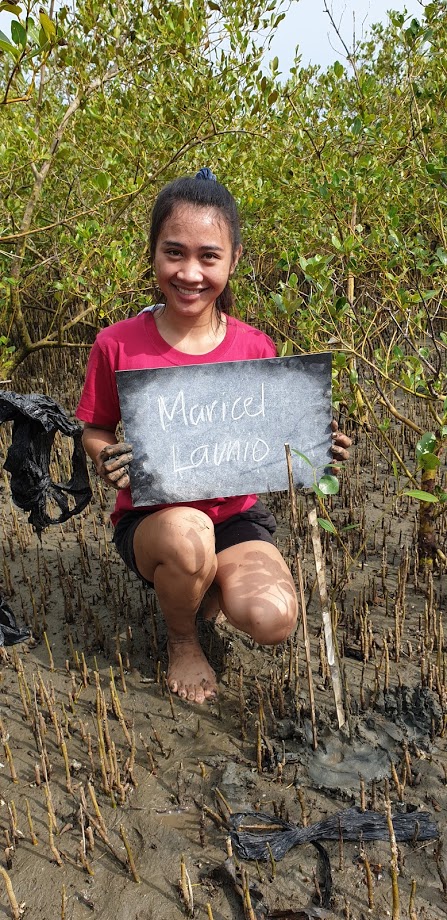 Maricel
Launio